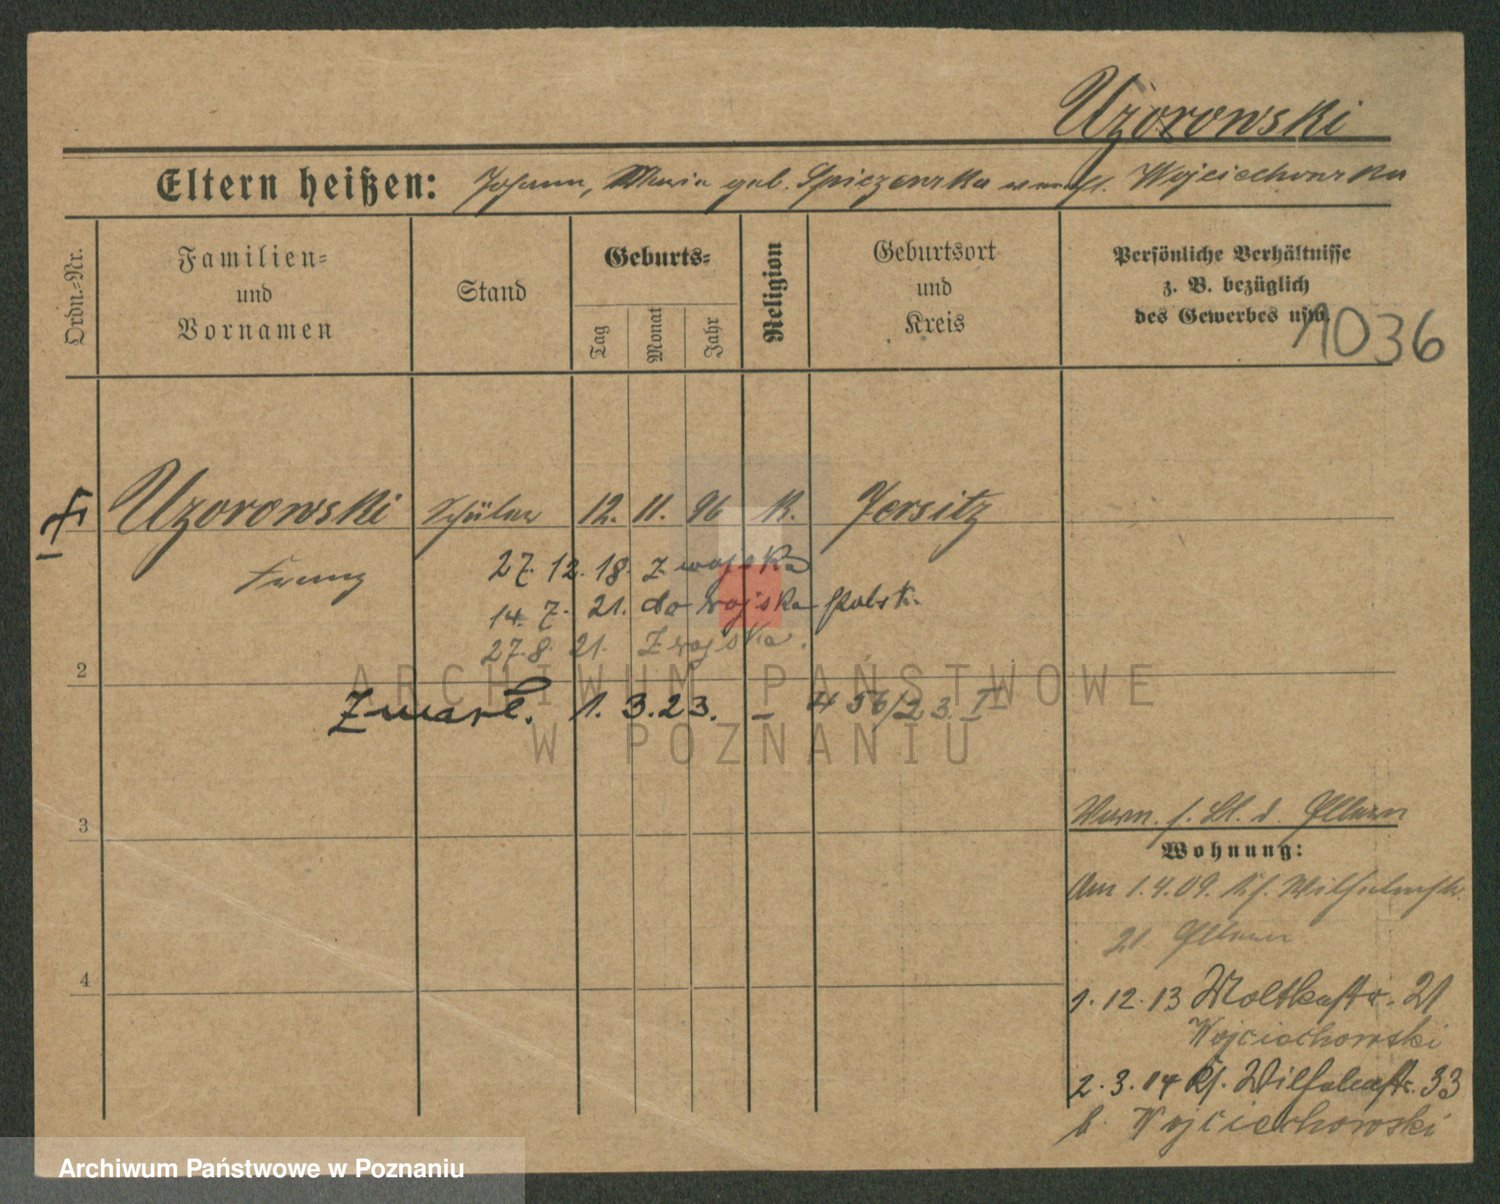 Uzorowski
Eltern heißen: Johann, Maria geb. Spiczewska verehl. Wojciechowska
Ordn.-Nr.
Familien-
und
Vornamen
Stand
Geburts-
Tag
Monat
Jahr
Religion
Geburtsort
und
Kreis
Persönliche Verhältnisse
z. B. bezüglich
des Gewerbes usw.
1036
Uzorowski Schüler 12. 11. 96 k. Jersitz
Franz
27. 12. 18. z wojska
14. 7. 21. do wojska polsk.
27. 8. 21. z wojska.
2
Zmarł. 1. 3. 23. – 456/23 I
3
4
Wohnung:
Am 1.4.09. Kf. Wilhelmstr.
21 Eltern
1. 12. 13 Moltkestr. 21
Wojciechowski
2. 3. 14 Kf. Wilhelmstr. 33
b. Wojciechowski
ARCHIWUM PAŃSTWOWE
W POZNANIU
Archiwum Państwowe w Poznaniu